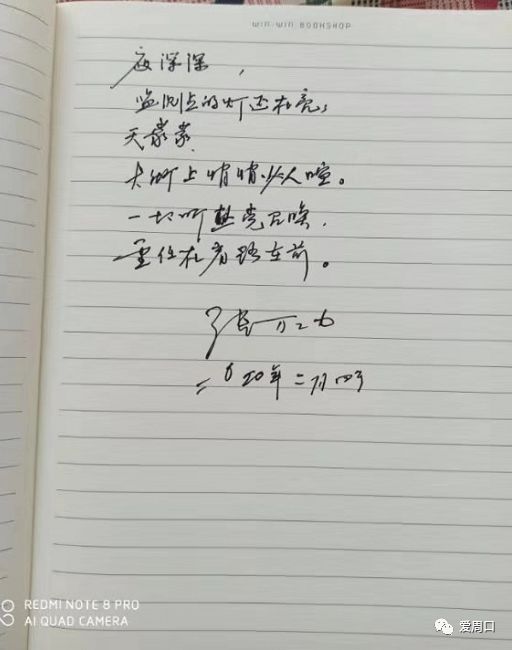 WIN WIN BOOKSHOP
夜深深，
监测点的灯还在亮；
天蒙蒙
大街上悄悄少人喧。
一切听党召唤.
重任在肩路在前。
张
二0二0年二月四号
REDMI NOTE 8 PRO
AI QUAD CAMERA
爱周口